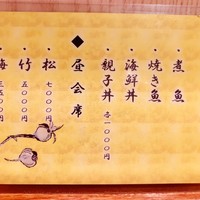 ・煮魚
・焼き魚
・海鮮丼
・親子丼 各一〇〇〇円
◆昼会席
・松 七〇〇〇円
・竹 五〇〇〇円
・梅 三五〇〇円